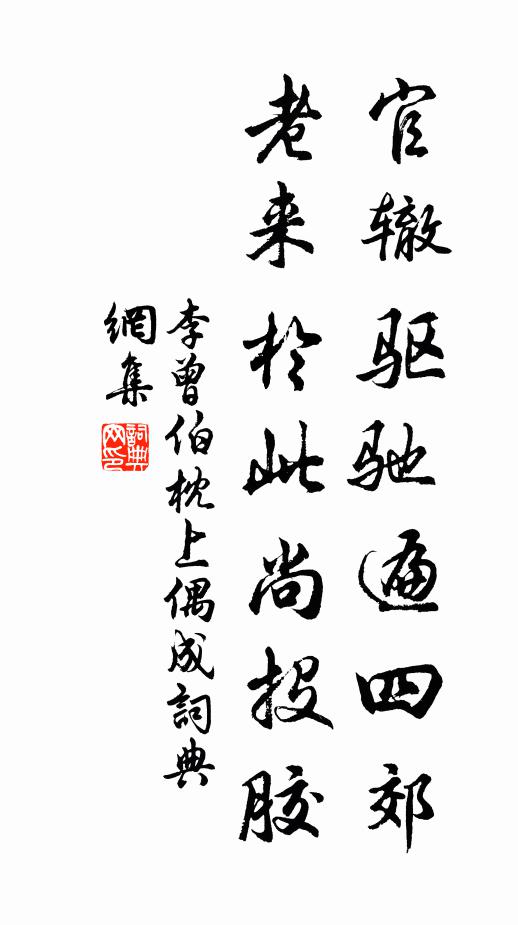 官辙驱驰遍四郊
老来於此尚投胶
李曾伯枕上偶成詞典
網集
詞典网印